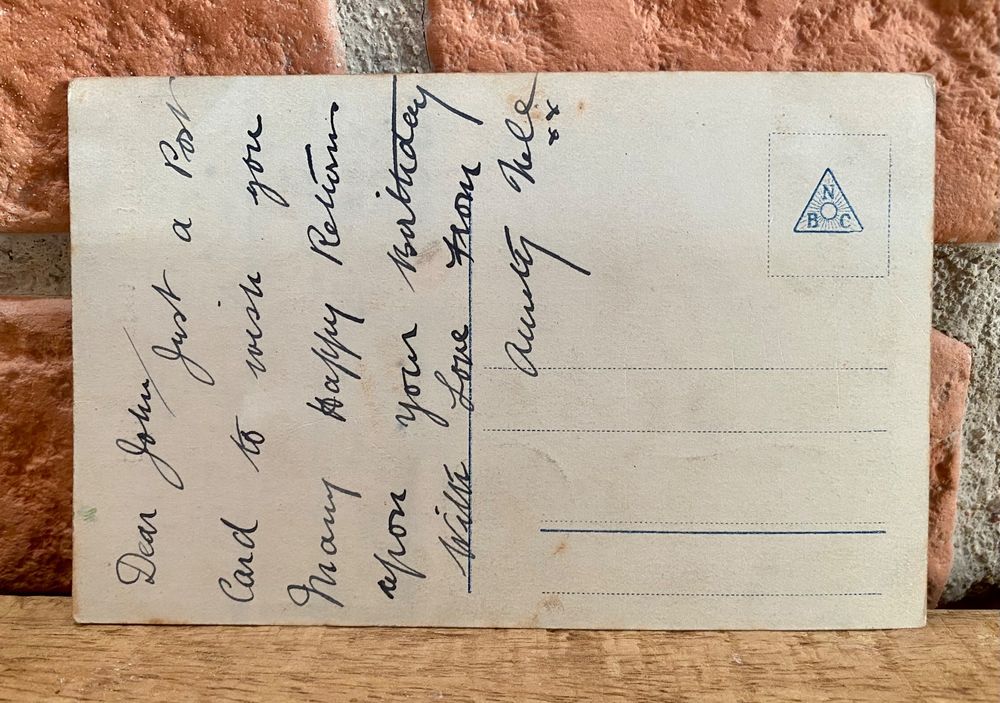 Dear John Just a Post
Card to wish you
Many Happy Returns
upon your Birthday
With Love from
Aunty Nell
xx
N
B C